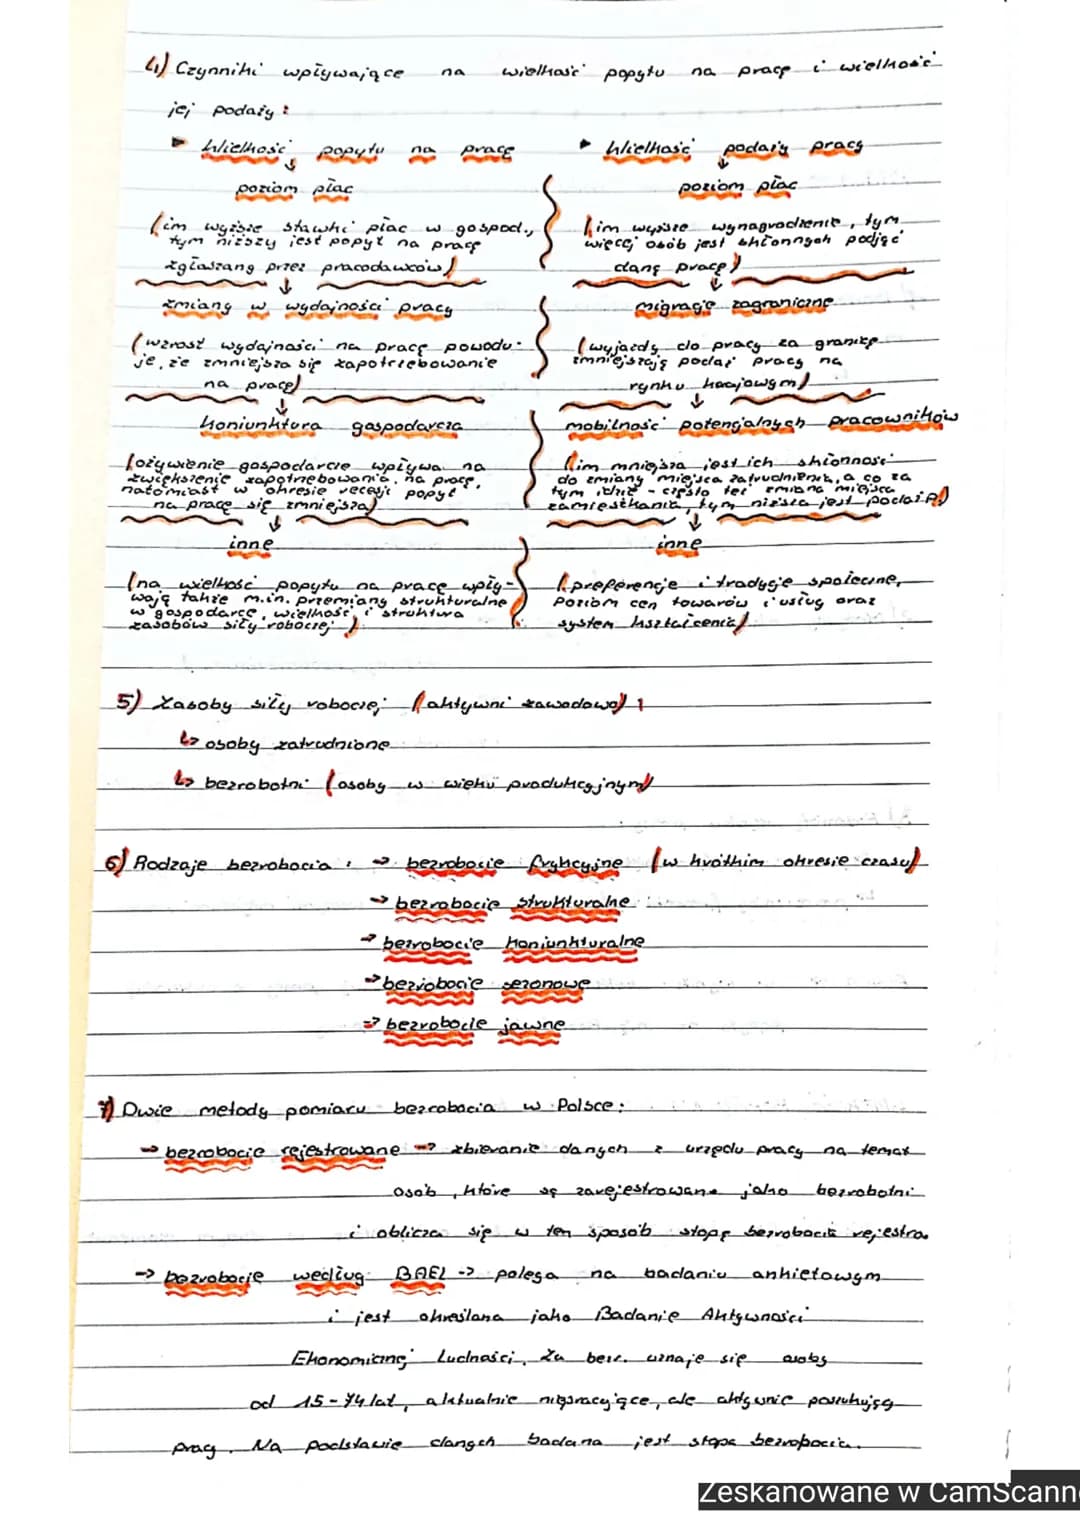 4) Czynniki wpływające na wielkość popytu na pracę i wielkość
jej podaży:
► Wielkość popytu na pracę
↓
poziom płac
(im wyższe stawki płac w gospod.,
tym niższy jest popyt na pracę
zgłaszany przez pracodawców)
↓
zmiany w wydajności pracy
(wzrost wydajności na pracę powodu-
je, że zmniejsza się zapotrzebowanie
na pracę)
↓
koniunktura gospodarcza
(ożywienie gospodarcze wpływa na
zwiększenie zapotrzebowania na pracę,
natomiast w okresie recesji popyt
na pracę się zmniejsza)
↓
inne
(na wielkość popytu na pracę wpły-
wają także m.in. przemiany strukturalne
w gospodarce, wielkość i struktura
zasobów siły roboczej)
► Wielkość podaży pracy
↓
poziom płac
(im wyższe wynagrodzenie, tym
więcej osób jest skłonnych podjąć
daną pracę)
↓
migracje zagraniczne
(wyjazdy do pracy za granicę
zmniejszają podaż pracy na
rynku krajowym)
↓
mobilność potencjalnych pracowników
(im mniejsza jest ich skłonność
do zmiany miejsca zatrudnienia, a co za
tym idzie - często też zmiana miejsca
zamieszkania, tym niższa jest podaż)
↓
inne
(preferencje i tradycje społeczne,
poziom cen towarów i usług oraz
system kształcenia)
5) Zasoby siły roboczej (aktywni zawodowo)
↳ osoby zatrudnione
↳ bezrobotni (osoby w wieku produkcyjnym)
6) Rodzaje bezrobocia: → bezrobocie frykcyjne (w krótkim okresie czasu)
→ bezrobocie strukturalne
→ bezrobocie koniunkturalne
→ bezrobocie sezonowe
→ bezrobocie jawne
7) Dwie metody pomiaru bezrobocia w Polsce:
→ bezrobocie rejestrowane → zbieranie danych z urzędu pracy na temat
osób, które są zarejestrowane jako bezrobotni
i oblicza się w ten sposób stopę bezrobocia rejestra.
→ bezrobocie według BAEL → polega na badaniu ankietowym
i jest określana jako Badanie Aktywności
Ekonomicznej Ludności. Za bezr. uznaje się osoby
od 15-74 lat, aktualnie niepracyjące, ale aktywnie poszukujęą
pracy. Na podstawie danych badana jest stopa bezrobocia.
Zeskanowane w CamScann